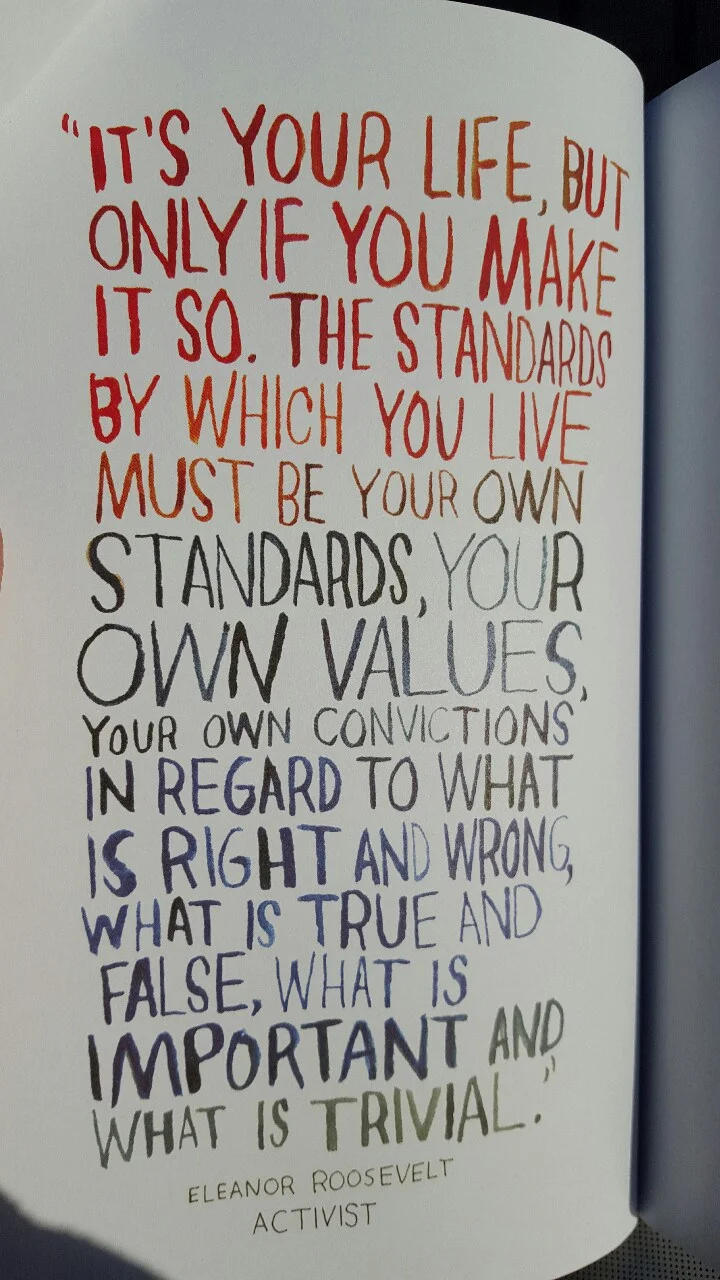 "IT'S YOUR LIFE, BUT
ONLY IF YOU MAKE
IT SO. THE STANDARDS
BY WHICH YOU LIVE
MUST BE YOUR OWN
STANDARDS, YOUR
OWN VALUES,
YOUR OWN CONVICTIONS
IN REGARD TO WHAT
IS RIGHT AND WRONG,
WHAT IS TRUE AND
FALSE, WHAT IS
IMPORTANT AND
WHAT IS TRIVIAL."
ELEANOR ROOSEVELT
ACTIVIST